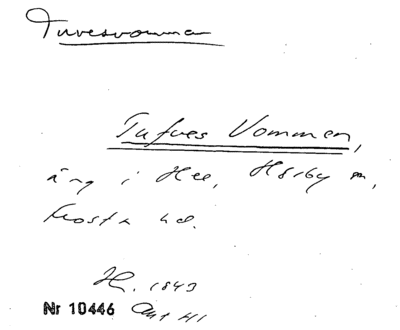 Tuvesvomma
Tufves Vommen,
äng i Hee, Hörby sn,
Frosta hd.
H. 1843
Nr 10446 Akt 41